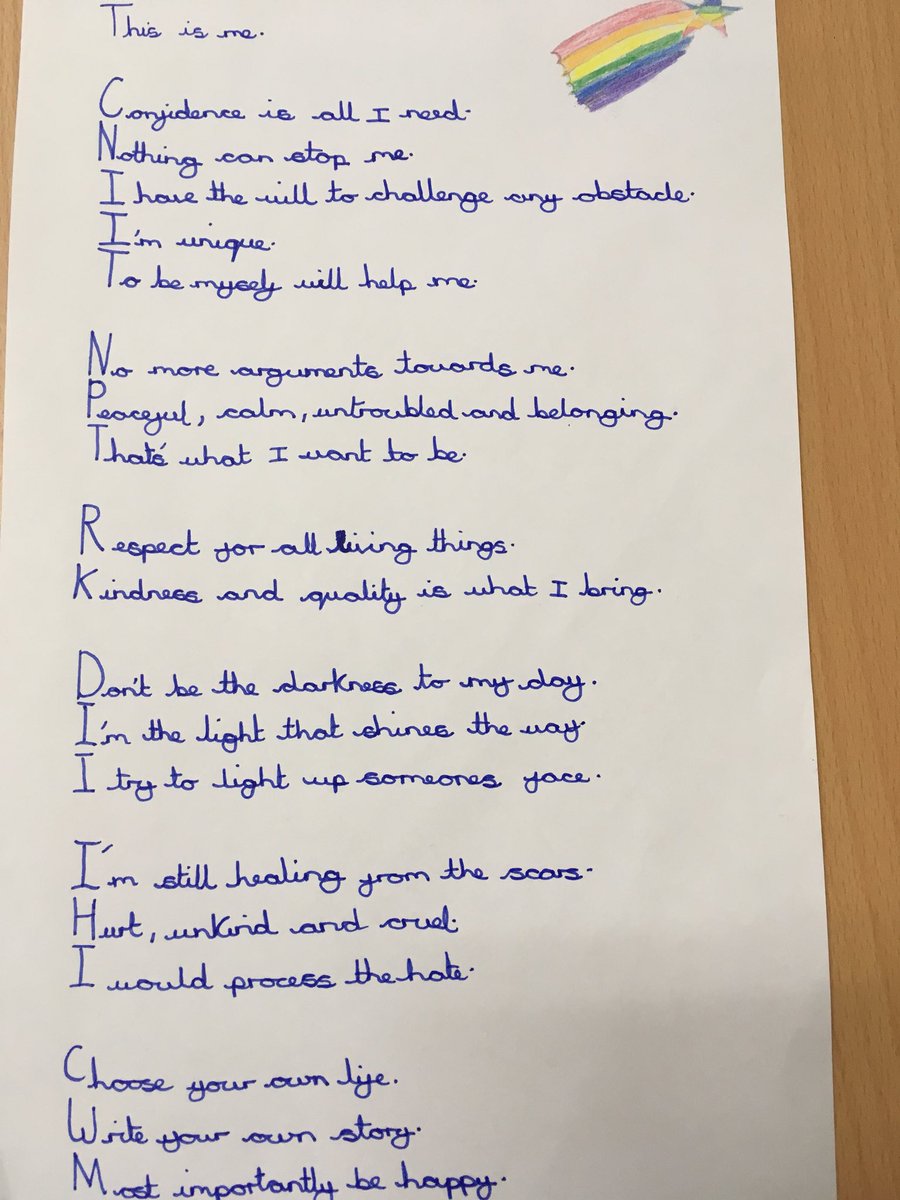 This is me.
Confidence is all I need.
Nothing can stop me.
I have the will to challenge any obstacle.
I'm unique.
To be myself will help me.
No more arguments towards me.
Peaceful, calm, untroubled and belonging.
That's what I want to be.
Respect for all living things.
Kindness and quality is what I bring.
Don't be the darkness to my day.
I'm the light that shines the way.
I try to light up someones face.
I'm still healing from the scars.
Hurt, unkind and cruel.
I would process the hate.
Choose your own life.
Write your own story.
Most importantly be happy.